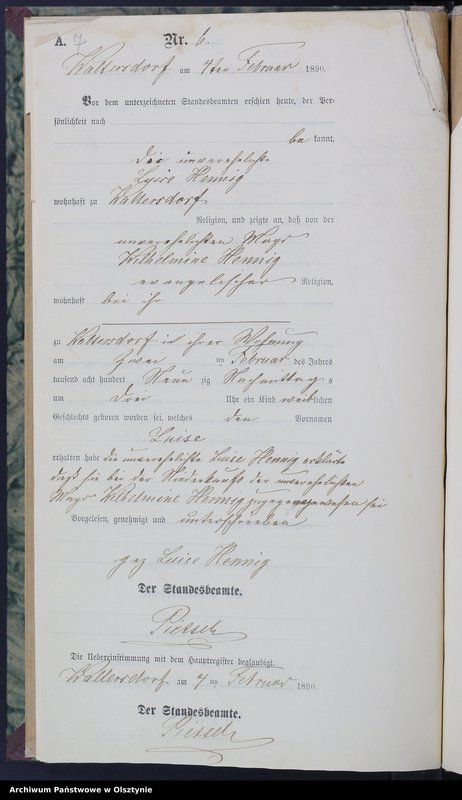 A. 7 Nr. 6.
Waltersdorf am 4ten Februar 1890.
Vor dem unterzeichneten Standesbeamten erschien heute, der Per-
sönlichkeit nach
be kannt,
die unverehelichte
Luise Hennig
wohnhaft zu Waltersdorf
Religion, und zeigte an, daß von der
unverehelichten Magd
Wilhelmine Hennig
evangelischer Religion,
wohnhaft bei ihr
zu Waltersdorf in ihrer Wohnung
am zwei ten Februar des Jahres
tausend acht hundert Neun zig Nachmittags
um drei Uhr ein Kind weiblichen
Geschlechts geboren worden sei, welches den Vornamen
Luise
erhalten habe die unverehelichte Luise Hennig erklärte
daß sie bei der Niederkunft der unverehelichten
Magd Wilhelmine Hennig zugegen gewesen sei
Vorgelesen, genehmigt und unterschrieben
gez Luise Hennig
Der Standesbeamte.
Pietsch
Die Uebereinstimmung mit dem Hauptregister beglaubigt.
Waltersdorf am 4 ten Februar 1890.
Der Standesbeamte.
Pietsch
Archiwum Państwowe w Olsztynie